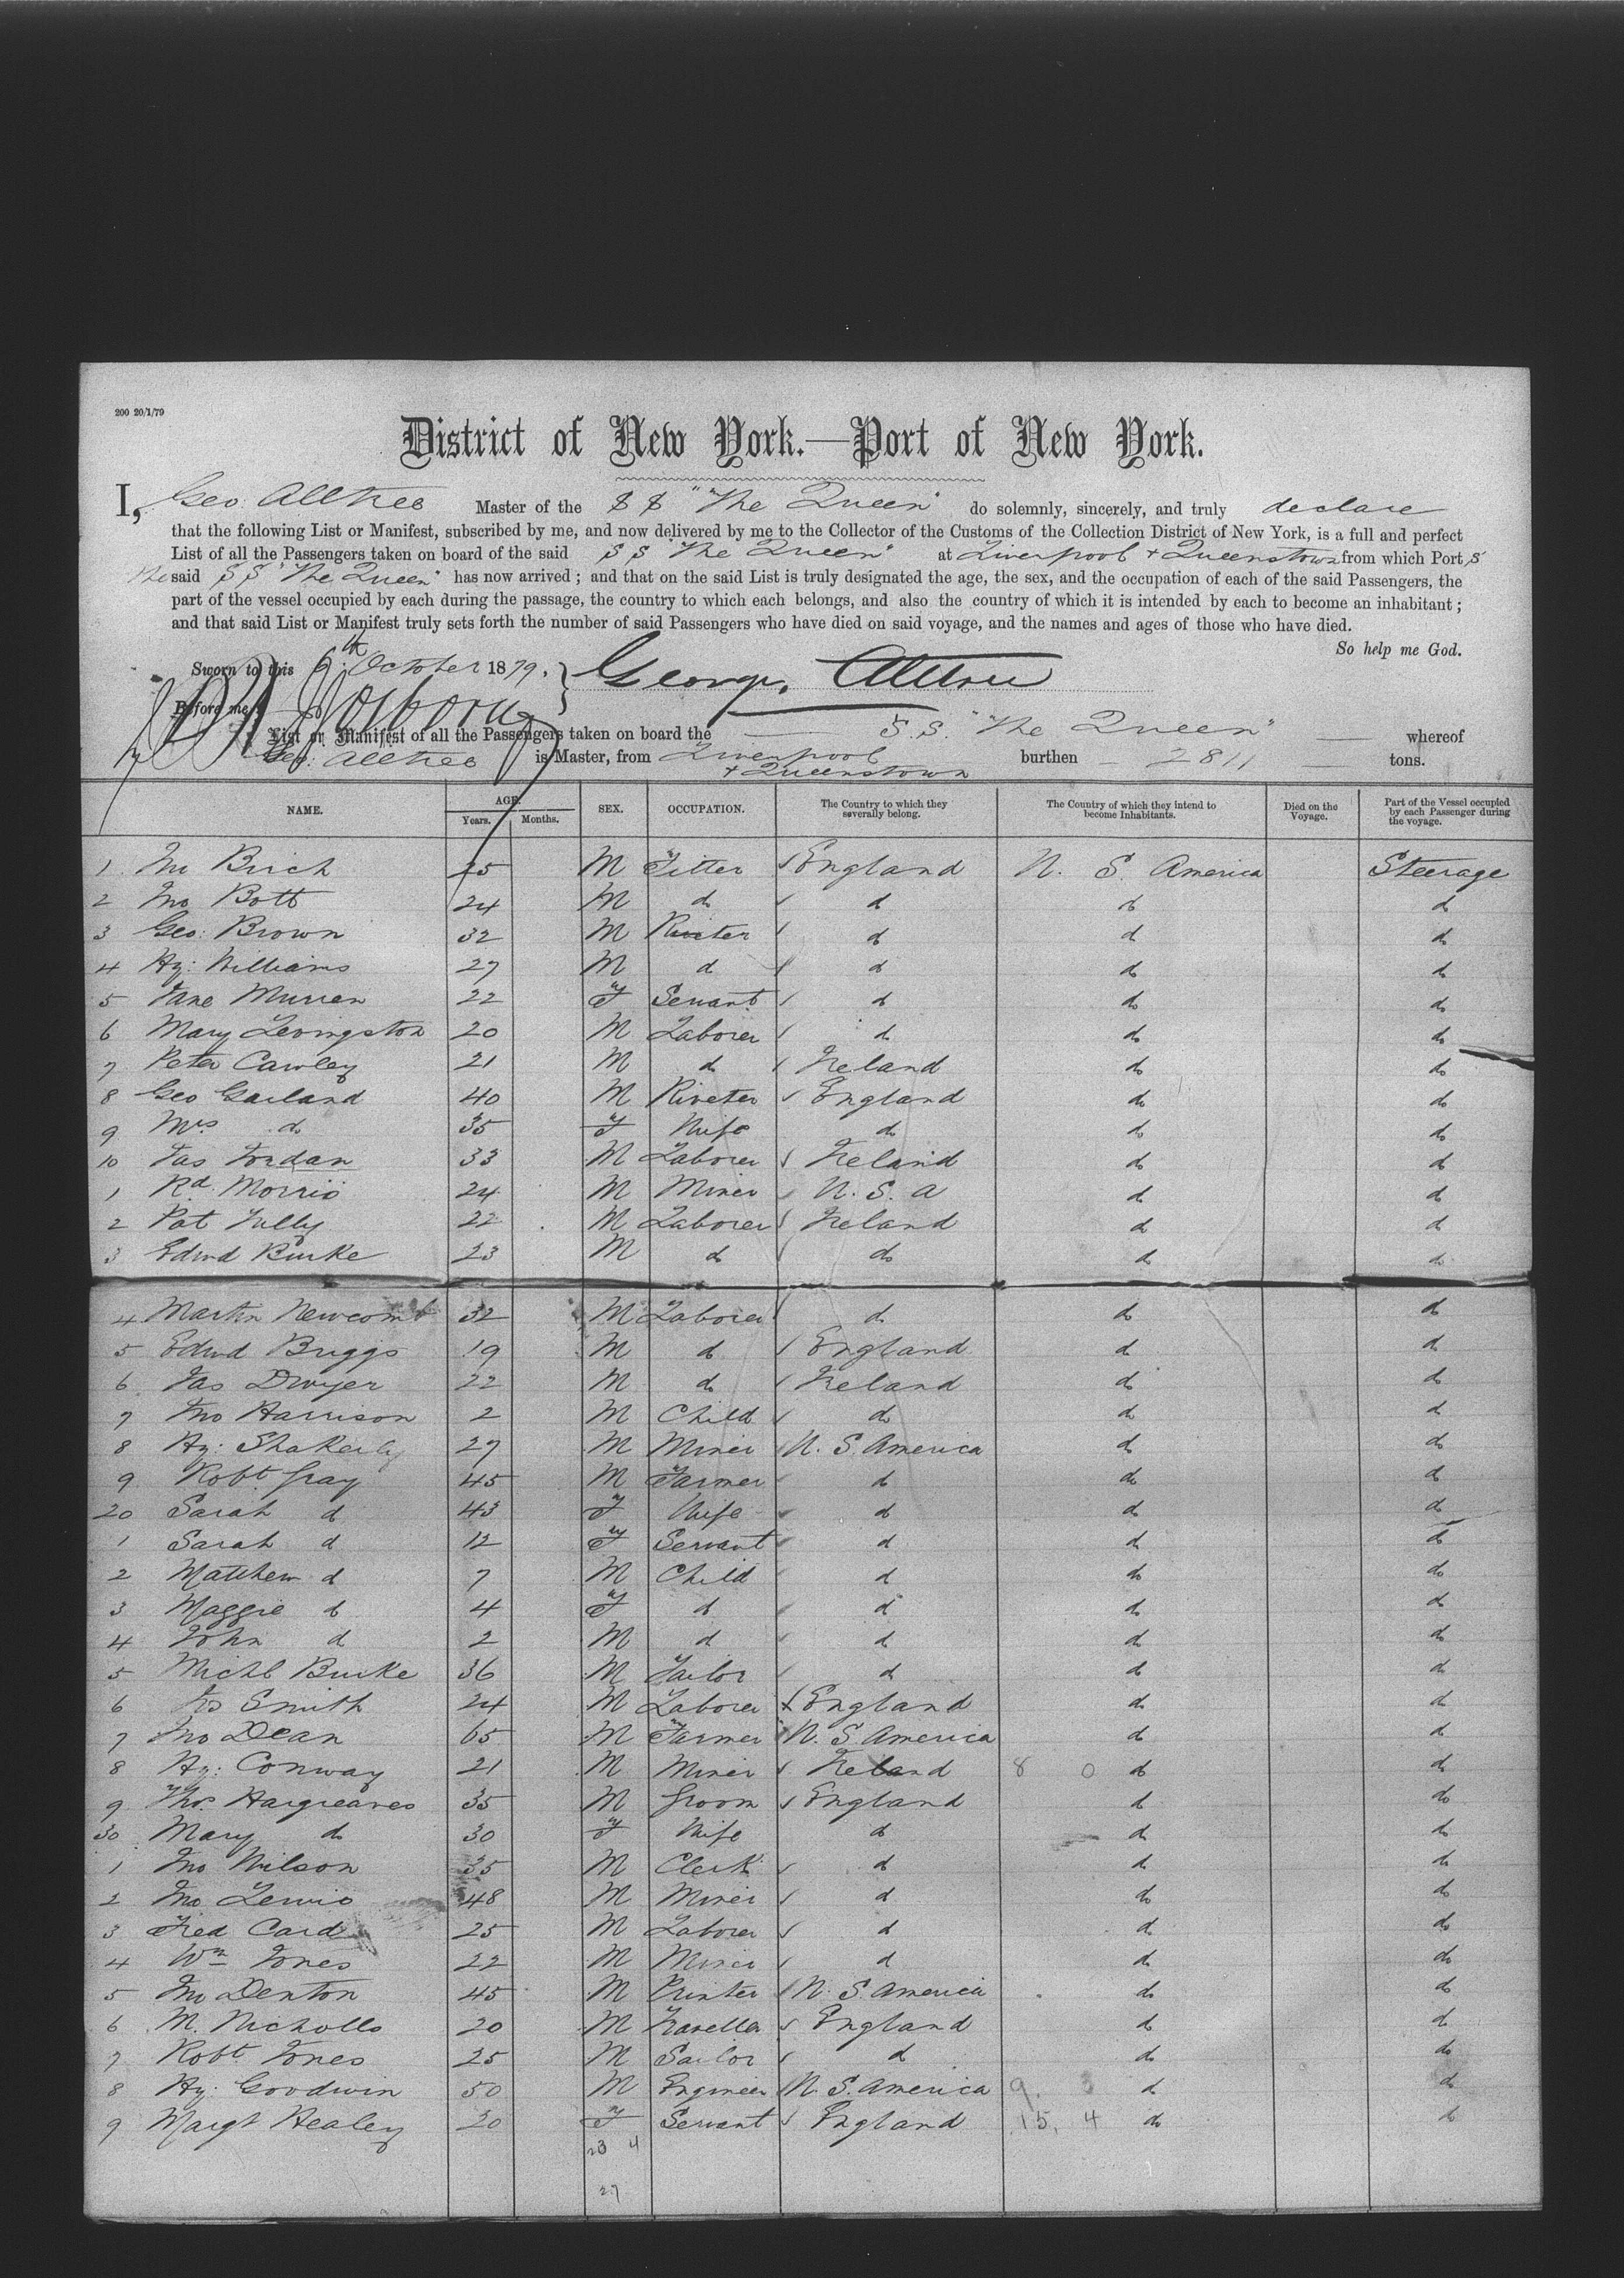 200 20/1/79
District of New York.—Port of New York.
I, Geo Alltree Master of the S S "The Queen" do solemnly, sincerely, and truly declare
that the following List or Manifest, subscribed by me, and now delivered by me to the Collector of the Customs of the Collection District of New York, is a full and perfect
List of all the Passengers taken on board of the said S S "The Queen" at Liverpool + Queenstown from which Port s
the said S S "The Queen" has now arrived; and that on the said List is truly designated the age, the sex, and the occupation of each of the said Passengers, the
part of the vessel occupied by each during the passage, the country to which each belongs, and also the country of which it is intended by each to become an inhabitant;
and that said List or Manifest truly sets forth the number of said Passengers who have died on said voyage, and the names and ages of those who have died.
So help me God.
Sworn to this October 1879. George Alltree
Before me
List or Manifest of all the Passengers taken on board the S.S. "The Queen" whereof
Geo: Alltree is Master, from Liverpool + Queenstown burthen 2811 tons.
NAME. AGE. Years. Months. SEX. OCCUPATION. The Country to which they severally belong. The Country of which they intend to become Inhabitants. Died on the Voyage. Part of the Vessel occupied by each Passenger during the voyage.
1 Jno Birch 25 M Fitter England U. S. America Steerage
2 Jno Bott 24 M do do do do
3 Geo: Brown 32 M Riveter do do do
4 Hy: Williams 27 M do do do do
5 Jane Murren 22 F Servant do do do
6 Mary Levingston 20 M Laborer do do do
7 Peter Cawley 21 M do Ireland do do
8 Geo Garland 40 M Riveter England do do
9 Mrs do 35 F Wife do do do
10 Jas Jordan 33 M Laborer Ireland do do
1 Rd Morris 24 M Miner U. S. A do do
2 Pat Tully 22 M Laborer Ireland do do
3 Edwd Burke 23 M do do do do
4 Martin Newcomb 32 M Laborer do do do
5 Edwd Briggs 19 M do England do do
6 Jas Dwyer 22 M do Ireland do do
7 Jno Harrison 2 M Child do do do
8 Hy: Shakerly 27 M Miner U. S. America do do
9 Robt Gray 45 M Farmer do do do
20 Sarah do 43 F Wife do do do
1 Sarah do 12 F Servant do do do
2 Matthew do 7 M Child do do do
3 Maggie do 4 F do do do do
4 John do 2 M do do do do
5 Michl Burke 36 M Tailor do do do
6 Jno Smith 24 M Laborer England do do
7 Jno Dean 65 M Farmer U. S. America do do
8 Hy: Conway 21 M Miner Ireland 8 0 do do
9 Thos Hargreaves 35 M Groom England do do
30 Mary do 30 F Wife do do do
1 Jno Wilson 35 M Clerk do do do
2 Jno Lewis 48 M Miner do do do
3 Fred Card 25 M Laborer do do do
4 Wm Jones 22 M Miner do do do
5 Jno Denton 45 M Printer U. S. America do do
6 M. Nicholls 20 M Traveller England do do
7 Robt Jones 25 M Sailor do do do
8 Hy: Goodwin 50 M Engineer U. S. America 9. 3 do do
9 Margt Healey 20 F Servant England 15. 4 do do
23 4
27